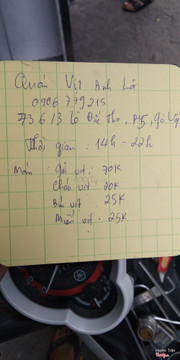 Quán Vịt Anh Lới
0906 799 215
736/3 Lê Đức Thọ, P15, Gò Vấp
Thời gian: 14h - 22h
Món: gỏi vịt: 30K
Cháo vịt: 20K
Bún vịt: 25K
Miến vịt: 25K